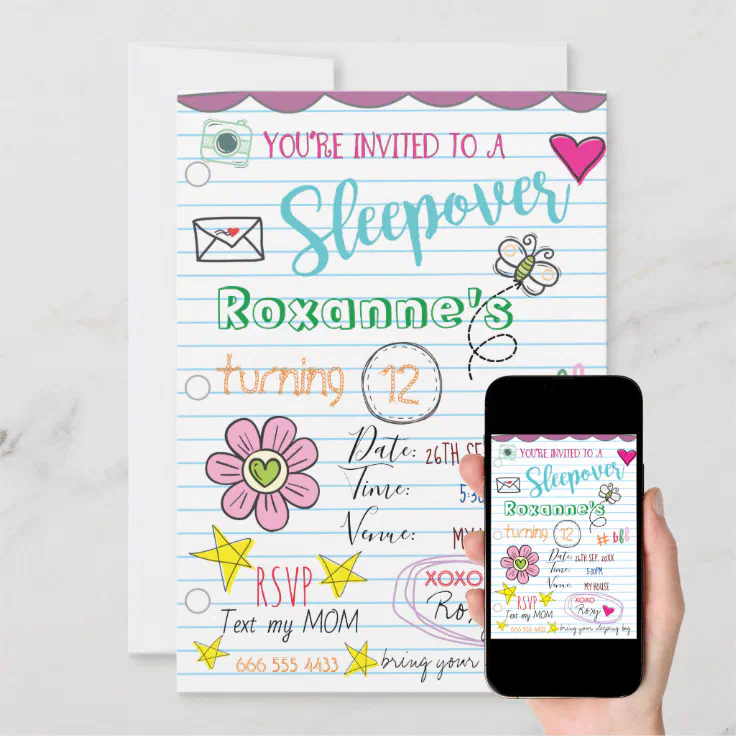 YOU'RE INVITED TO A
Sleepover
Roxanne's
turning 12
Date: 26TH SE
Time: 5:30
Venue: MY
RSVP
XOXO
Text my MOM
Ro
666 555 4433
bring your
YOU'RE INVITED TO A
Sleepover
Roxanne's
turning 12
# bff
Date: 26TH SEP. 20XX
Time: 5:30PM
Venue: MY HOUSE
RSVP
XOXO
Text my MOM
Roxy
666 555 4433
bring your sleeping bag